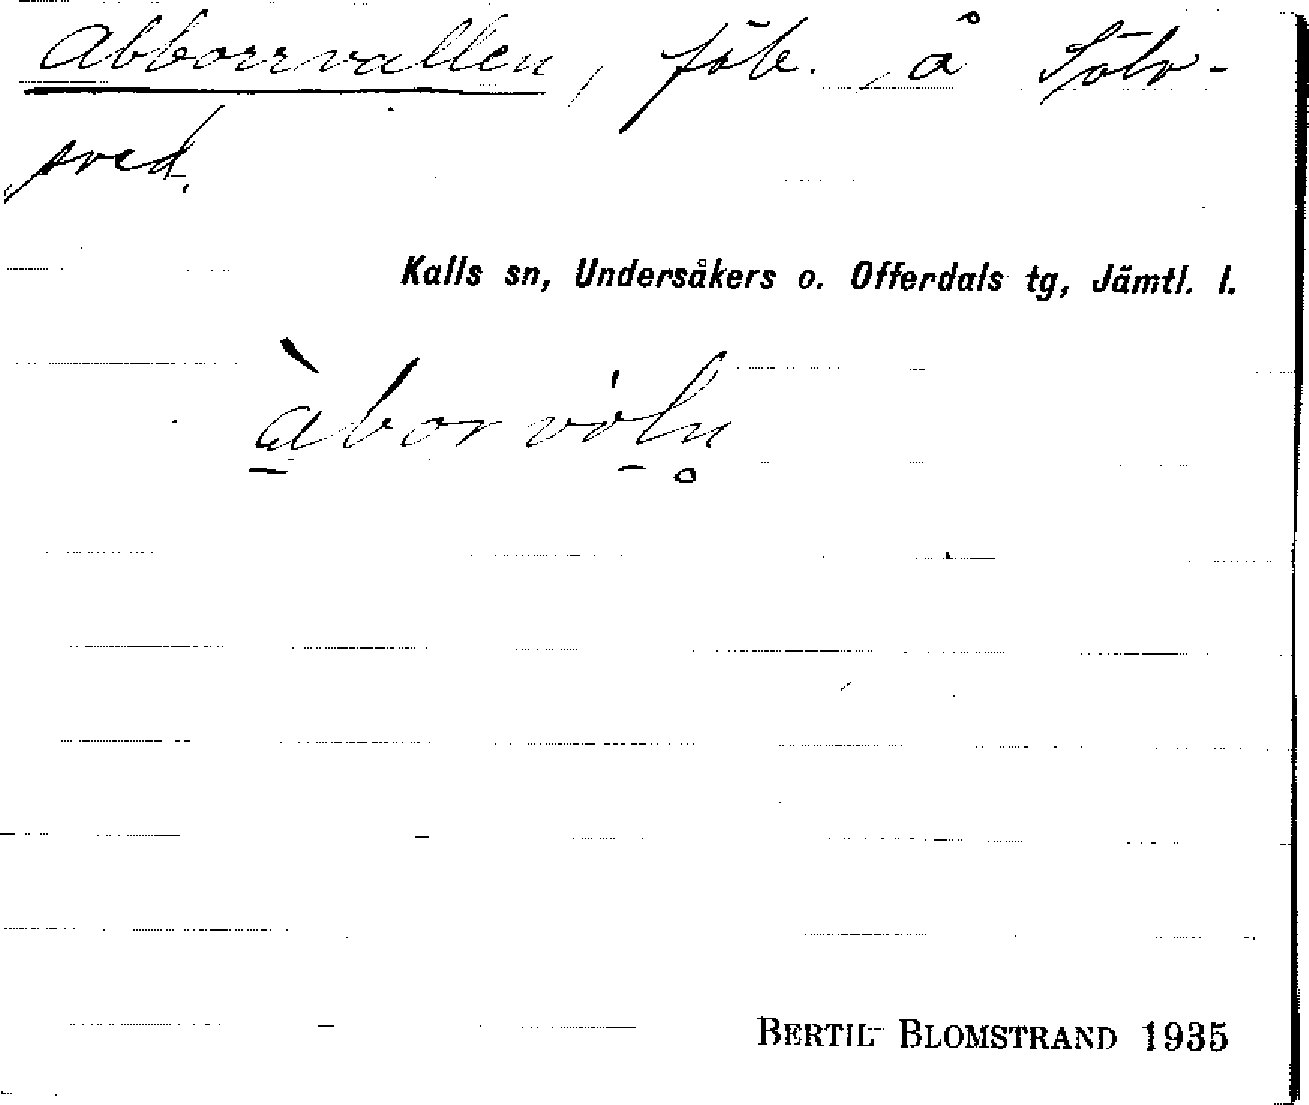 Abborrvallen, fäb. å Sölv-
sved.
Kalls sn, Undersåkers o. Offerdals tg, Jämtl. l.
àborvöln̥
BERTIL BLOMSTRAND 1935